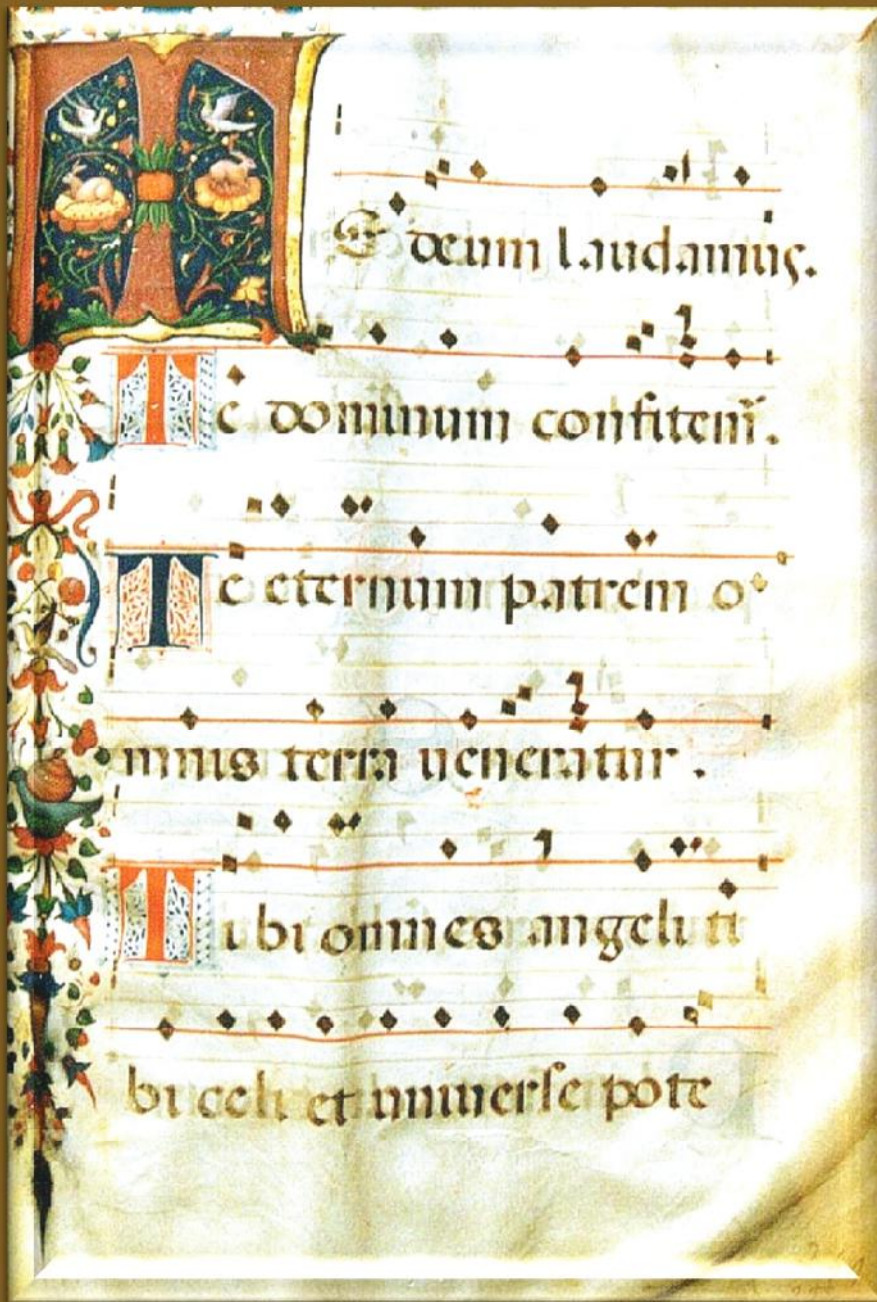 TE deum laudamus.
Te dominum confitem̄.
Te eternum patrem o
mnis terra ueneratur.
Tibi omnes angeli ti
bi celi et uniuerse pote